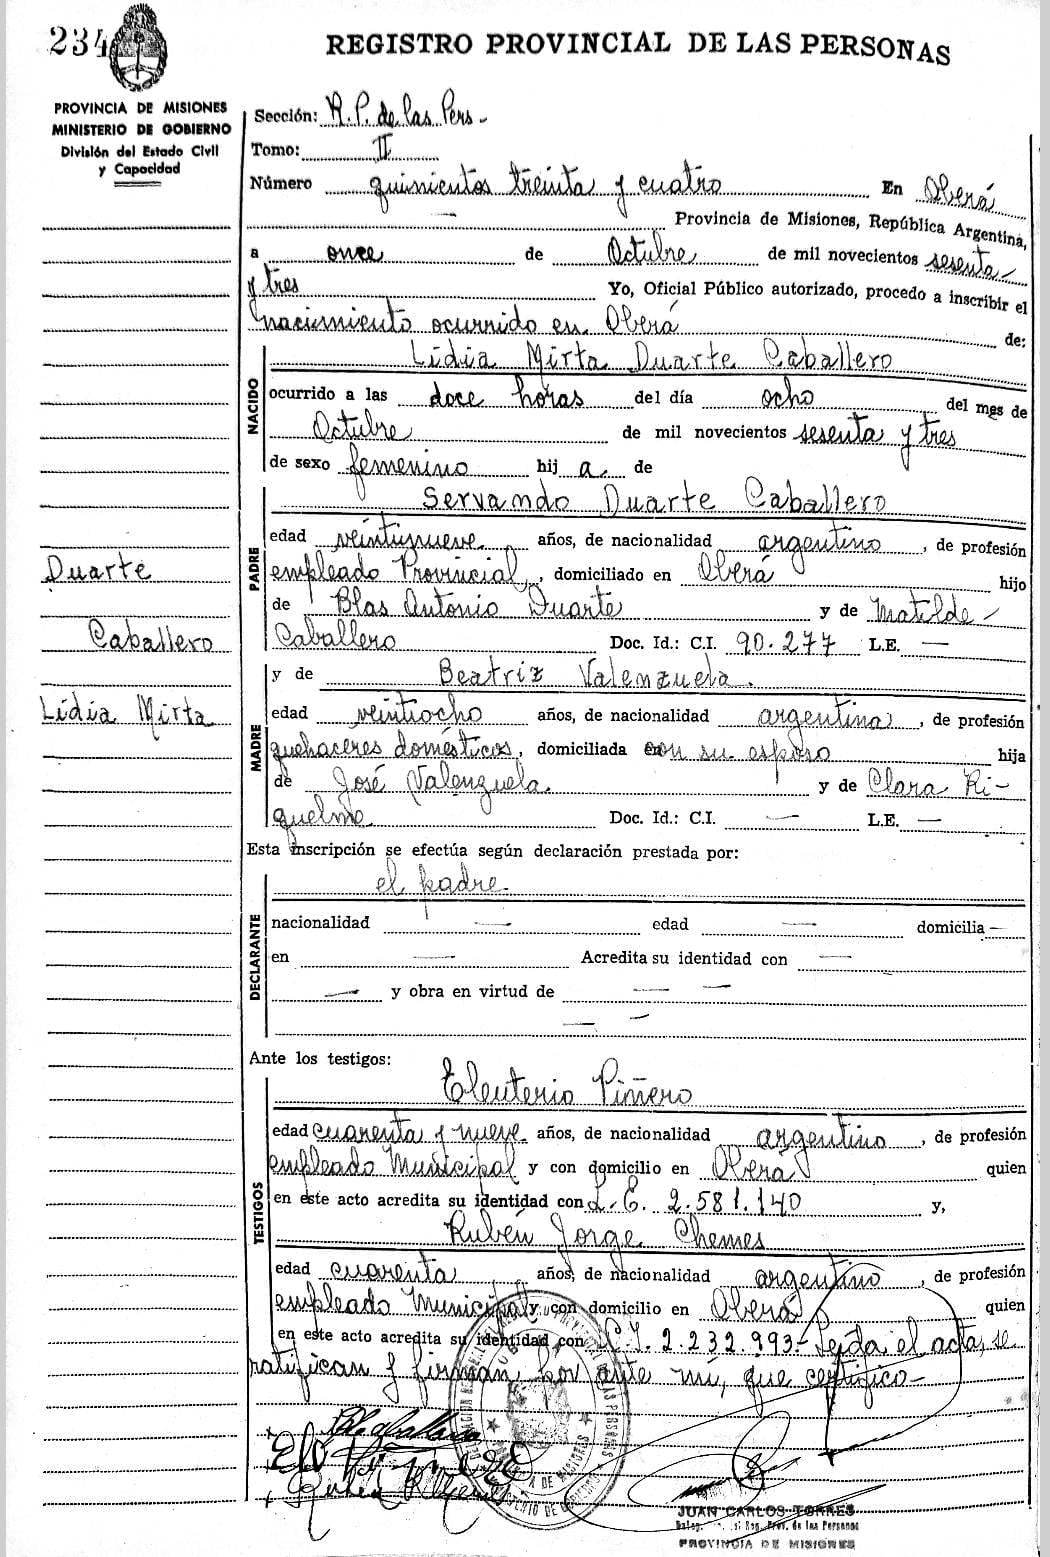 234
REGISTRO PROVINCIAL DE LAS PERSONAS
PROVINCIA DE MISIONES
MINISTERIO DE GOBIERNO
División del Estado Civil
y Capacidad
Sección: R. P. de las Pers -
Tomo: II
Número quinientos treinta y cuatro En Oberá
— Provincia de Misiones, República Argentina,
a once de Octubre de mil novecientos sesenta
y tres Yo, Oficial Público autorizado, procedo a inscribir el
nacimiento ocurrido en Oberá de:
NACIDO
Lidia Mirta Duarte Caballero
ocurrido a las doce horas del día ocho del mes de
Octubre de mil novecientos sesenta y tres
de sexo femenino hij a de
PADRE
Servando Duarte Caballero
edad veintinueve años, de nacionalidad argentino, de profesión
empleado Provincial, domiciliado en Oberá hijo
de Blas Antonio Duarte y de Matilde -
Caballero Doc. Id.: C.I. 90.277 L.E. —
Duarte
Caballero
Lidia Mirta
MADRE
y de Beatriz Valenzuela.
edad veintiocho años, de nacionalidad argentina, de profesión
quehaceres domésticos, domiciliada con su esposo hija
de José Valenzuela. y de Clara Ri-
quelme Doc. Id.: C.I. — L.E. —
Esta inscripción se efectúa según declaración prestada por:
DECLARANTE
el padre.
nacionalidad — edad — domicilia —
en — Acredita su identidad con —
— y obra en virtud de — —
— —
Ante los testigos:
TESTIGOS
Eleuterio Piñero
edad cuarenta y nueve años, de nacionalidad argentino, de profesión
empleado Municipal y con domicilio en Oberá quien
en este acto acredita su identidad con L. E. 2.581.140 y,
Rubén Jorge Chemes
edad cuarenta años, de nacionalidad argentino, de profesión
empleado Municipal y con domicilio en Oberá quien
en este acto acredita su identidad con C.I. 2.232.993- Leída el acta, se
ratifican y firman por ante mí, que certifico-
JUAN CARLOS TORRES
Reg. Prov. de las Personas
PROVINCIA DE MISIONES